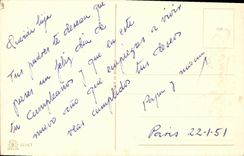 Querida hija
Tus padres te desean que
pases un feliz día de
tu Cumpleaños y que en este
nuevo año que empiezas a vivir
veas cumplidos tus deseos
Papa y mama
Paris 22-1-51